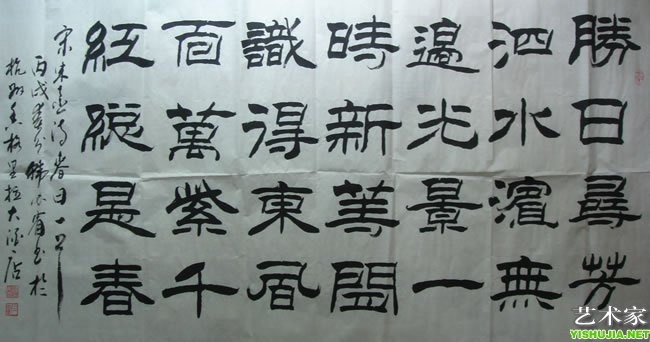 勝日尋芳
泗水濱無
邊光景一
時新等閒
識得東風
面萬紫千
紅總是春
宋朱熹詩春日一首
丙戌書於
杭州香格里拉大酒店
艺术家
YISHUJIA.NET